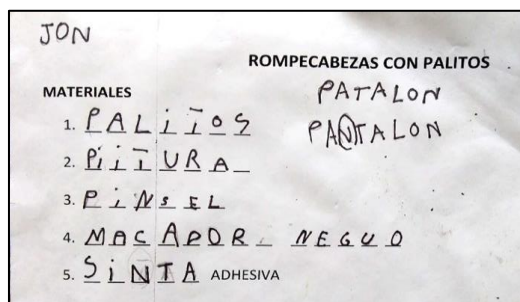 JON
ROMPECABEZAS CON PALITOS
PATALON
PANTALON
MATERIALES
1. PALiTOS
2. PiiTURA
3. PiNSEL
4. MACADOR NEGUO
5. SiNTA ADHESIVA